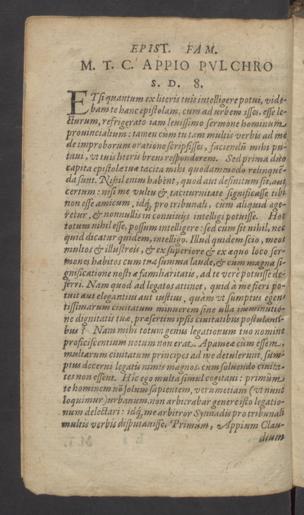 EPIST. FAM.
M. T. C. APPIO PVLCHRO
S. D. 8.
ETsi quantum ex literis tuis intelligere potui, videbam
te hanc epistolam, cum ad urbem esses, esse lecturum,
refrigerato iam leuissimo sermone hominum
prouincialium: tamen cum tu tam multis verbis ad me
de improborum oratione scripsisses, faciendũ mihi putaui,
vt tuis literis breui responderem. Sed prima duo
capita epistolæ tuæ tacita mihi quodammodo relinquẽda
sunt. Nihil enim habent, quod aut definitum sit, aut
certum: nisi me vultu & taciturnitate significasse tibi
non esse amicum, idq́; pro tribunali, cum aliquid ageretur,
& nonnullis in conuiuijs intelligi potuisse. Hoc
totum nihil esse, possum intelligere: sed cum sit nihil, nec
quid dicatur quidem, intelligo. Illud quidem scio, meos
multos & illustreis, & ex superiore & ex æquo loco sermones
habitos cum tua summa laude, & cum magna significatione
nostræ familiaritatis, ad te verè potuisse deferri.
Nam quod ad legatos attinet, quid à me fieri potuit
aut elegantius aut iustius, quam vt sumptus egentissimarum
ciuitatum minuerem sine ulla imminutione
dignitatis tuæ, præsertim ipsis ciuitatibus postulantibus?
Nam mihi totum genus legationum tuo nomine
proficiscentium notum non erat. Apameæ cum essem,
multarum ciuitatum principes ad me detulerunt, sumptus
decerni legatis nimis magnos, cum soluendo ciuitates
non essent. Hic ego multa simul cogitaui: primum
te hominem nõ solum sapientem, verumetiam (vt nunc
loquimur) urbanum, non arbitrabar genere isto legationum
delectari: idq́; me arbitror Synnadis pro tribunali
multis verbis disputauisse. Primum, Appium Claudium